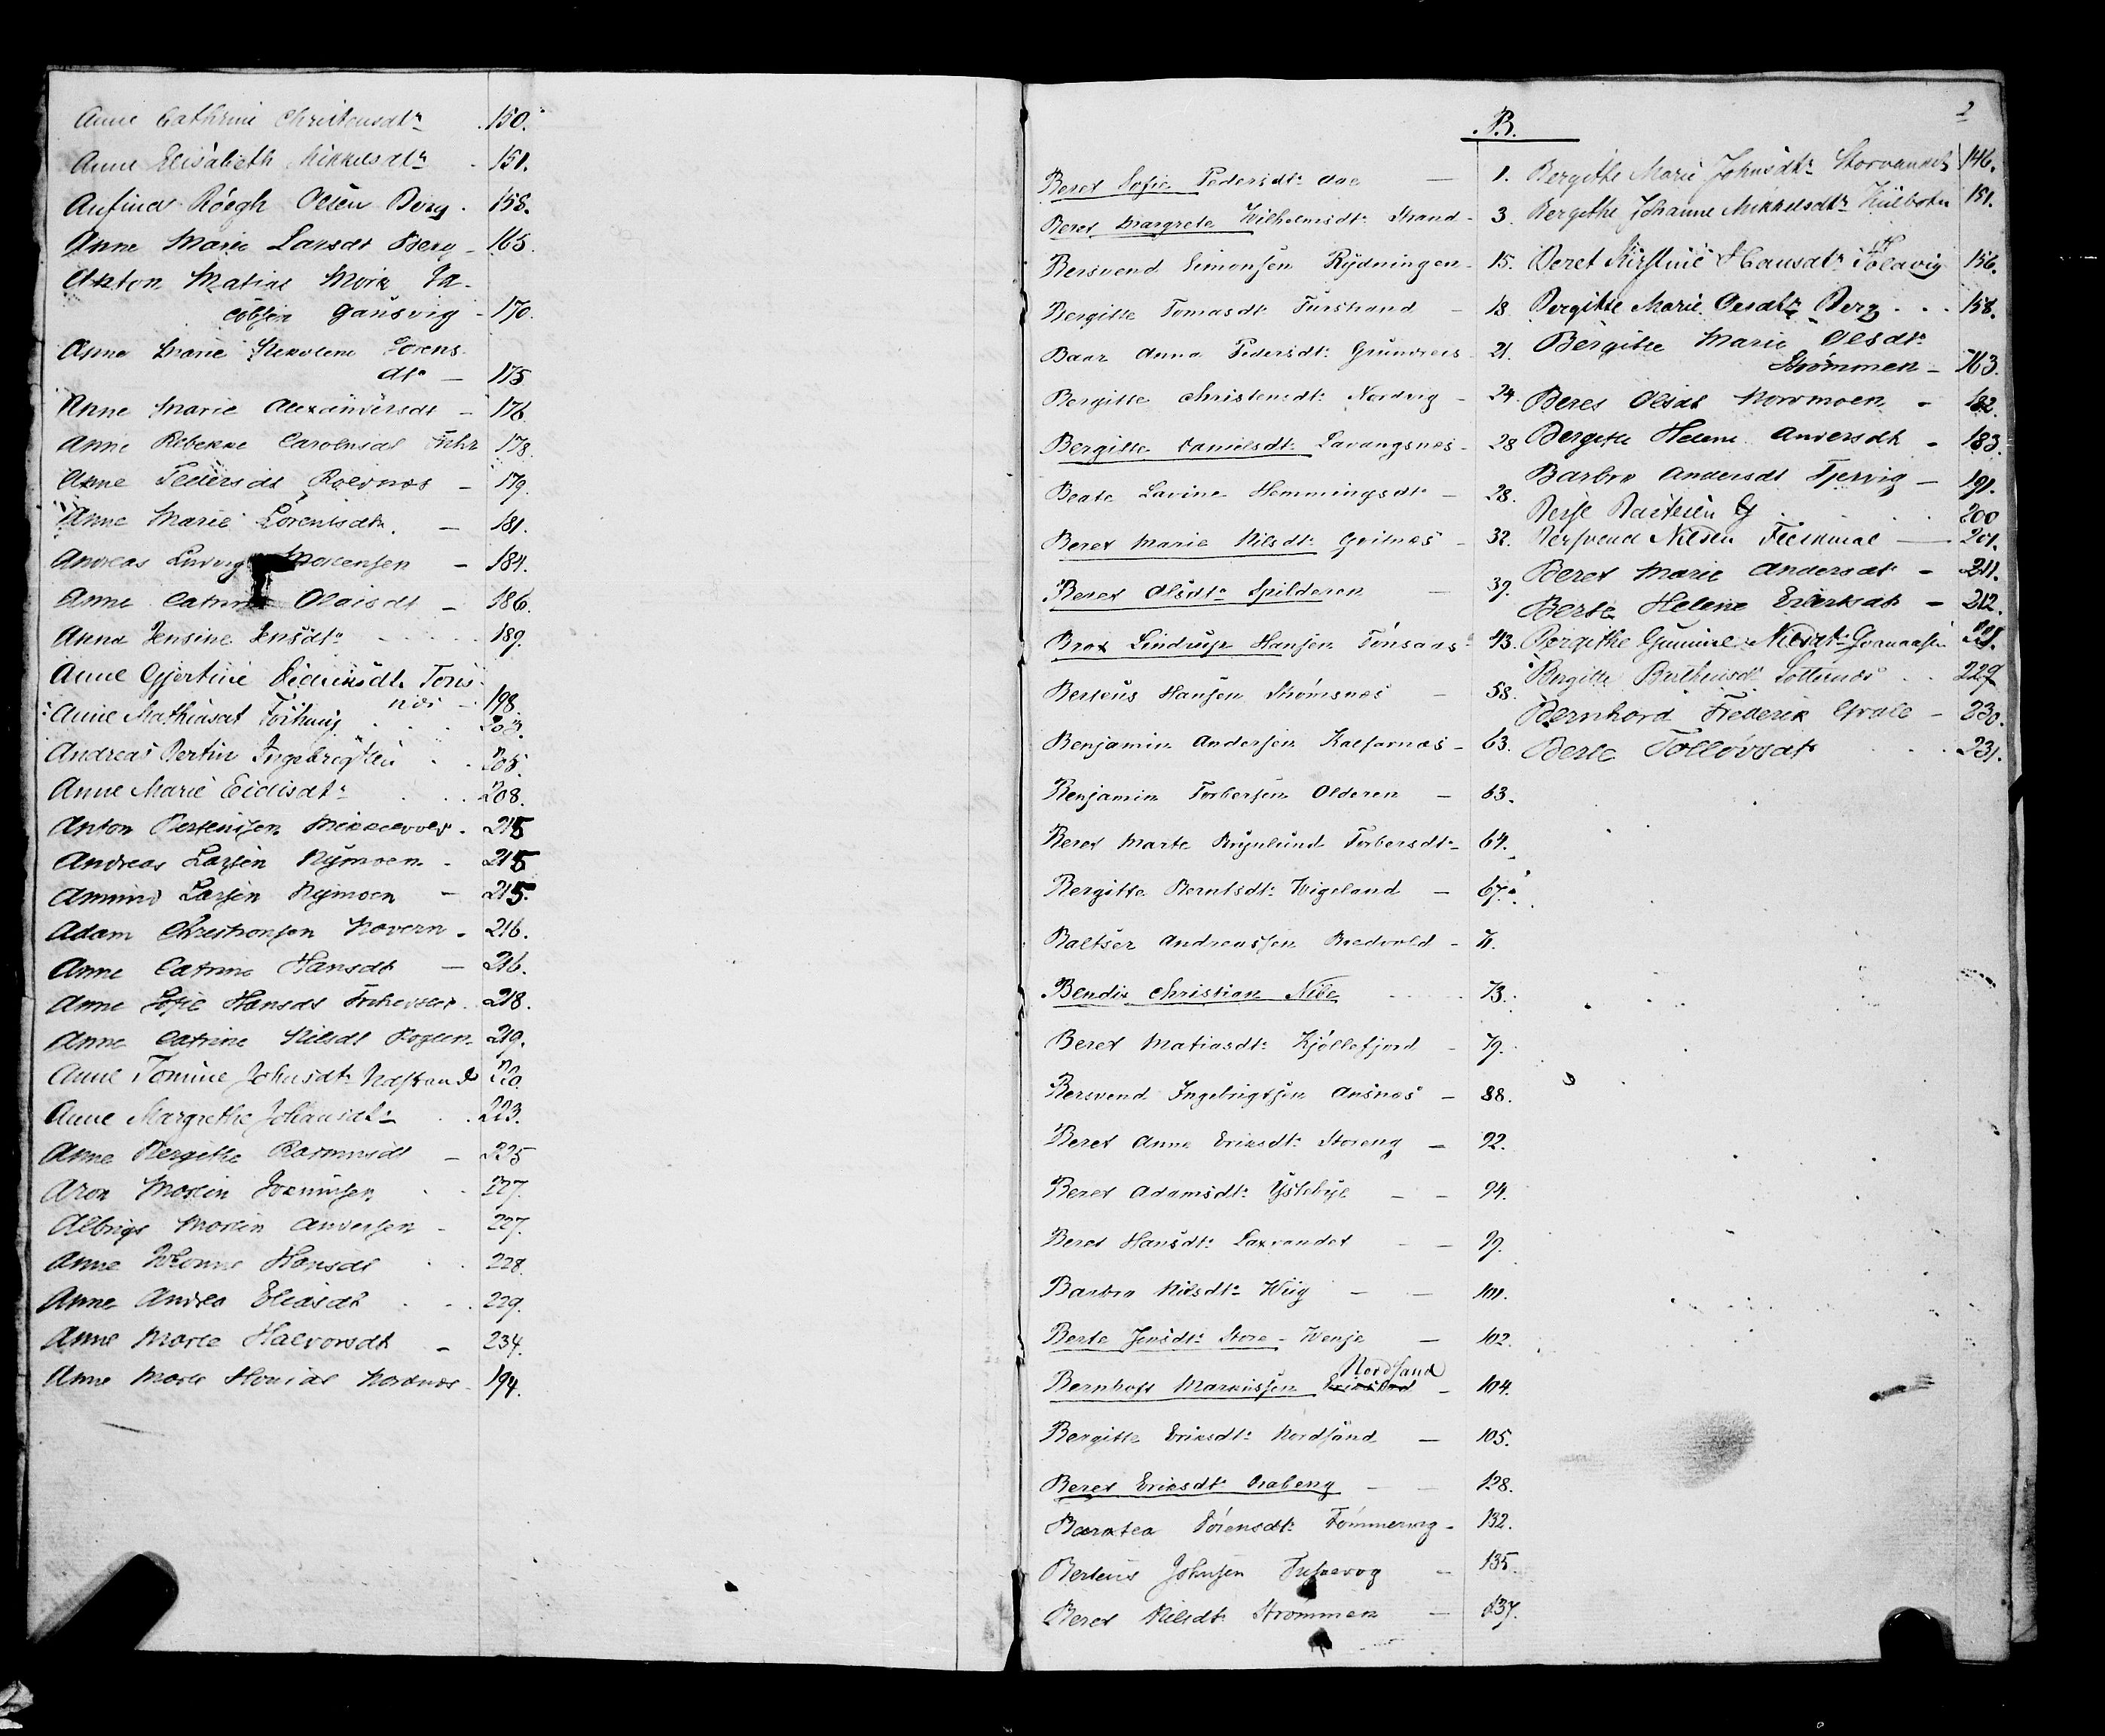 Anne Cathrine Christensdtr 150.
Anne Elisabeth Mikkelsdtr 151.
Anfind Röegh Olsen Berg 158.
Anne Marie Larsdt Berg 165.
Anton Matias Mörk Ja-
cobsen Gausvig 170.
Anne Marie Nekolene Sörens
dtr 175
Anne Marie Alexandersdt 176
Anne Rebekke Carolusdt 178
Anne Pedersdt 179.
Anne Marie Lorentsdtr. 181.
Andreas Ludvig Mortensen 184.
Anne Catrine Olaisdt 186.
Anna Jensine Jensdtr 189.
Anne Gjertine
198.
Anne Mathiasdt 203.
Andreas Bertin Ingebrigtsen 205.
Anne Marie Eidisdtr 208.
Anton Berteusen 215
Andreas Larsen Nÿmoen 215
Amund Larsen Nÿmoen 215.
Adam Christionsen 216.
Anne Catrine Hansdt 216.
Anne Sofie Hansdt 218.
Anne Catrine Nilsdt 219.
Anne Tomine Johnsdtr 220
Anne Margrethe Johansdtr 223.
Anne Bergithe Rasmusdt 225
Aron Mortin 227.
Albrigt Martin Andersen 227.
Anne Johanne Hansdt 228.
Anne Andrea Eliasdt 229.
Anne Marte Halvorsdt 234.
Anne Marte 194.
2
B.
Beret Sofie Pedersdtr Aae 1.
Beret Margrete Wilhelmsdtr Strand 3.
Bersvend Simonsen Rÿdningen 15.
Bergitte Tomasdtr Furstrand 18.
Baar Anna Pedersdtr Grundreis 21.
Bergitte Christensdtr Nordvig 24.
Bergitte Danielsdtr Lavangsnæs 28
Beate Lavine Hemmingsdtr 28.
Beret Marie Nilsdtr Grilnæs 32.
Beret Olsdtr Spilderen 39.
Brox Lindrup Hansen Finsaas 43.
Berteus Hansen Strömsnæs 58.
Benjamin Andersen Kalfarnæs 63.
Benjamin Torbersen Olderen 63.
Beret Marte Torbersdtr 64.
Bergitte Berntsdtr Wigeland 67.
Baltser Andreassen Bredvold 71.
Bendix Christian Nibe 73.
Beret Matiasdtr Kjöllefjord 79.
Bersvend Ingebrigtsen Ansnæs 88.
Beret Anne Eriksdtr Storeng 92.
Beret Adamsdtr Ystebÿe 94.
Beret Hansdtr Laxvandet 97.
Barbro Nilsdtr Wiig 101.
Berte Jensdtr Store-Wenje 102.
Nordsand
Bernhoft Markussen 104.
Bergitte Eriksdtr Nordsand 105.
Beret Eriksdtr Brabeng 128.
Barotea Sörensdtr Tömmervig 132.
Berteus Johnsen 135.
Beret Nilsdtr Strömmen 137.
Bergithe Marie Johnsdtr Storvandet 146.
Bergithe Johanne Mikkelsdtr Kiilbotn 151.
Beret Kirstine Hansdtr 156.
Bergitte Marie Olsdtr Berg 158.
Bergitte Marie Olsdtr
Strömmen 163.
Beret Olsdt Nordmoen 182.
Bergitte Helene Andersdtr 183.
Barbro Andersdt Tjervig 191.
200
Bersvend Nilsen 201.
Beret Marie Andersdt 211.
Berte Helene 212.
Bergithe Gunnine Nilsdtr 221.
Bergitte 229
Bernhard Frederik Grale 230.
Berte Tollovsdt 231.